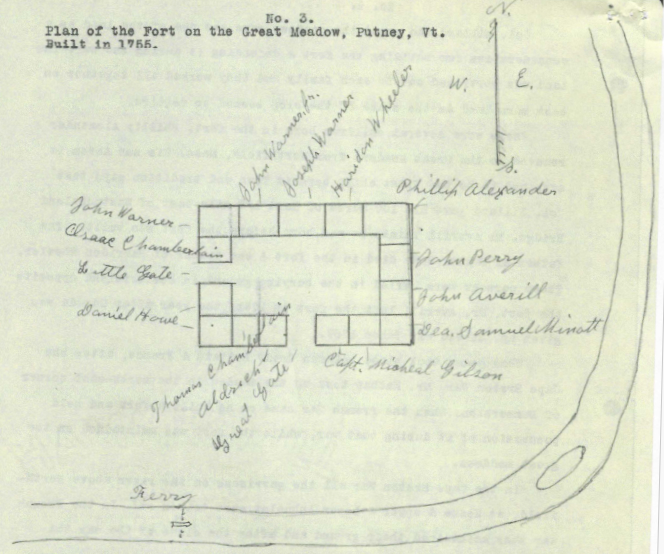 No. 3.
Plan of the Fort on the Great Meadow, Putney, Vt.
Built in 1755.
N.
W.
E.
S.
John Warner Jr.
Joseph Warner
Harridon Wheeler
Phillip Alexander
John Warner
Isaac Chamberlain
Little Gate
Daniel Howe
John Perry
John Averill
Dea. Samuel Minott
Capt. Micheal Gilson
Thomas Chamberlain
Aldrich
Great Gate
Ferry